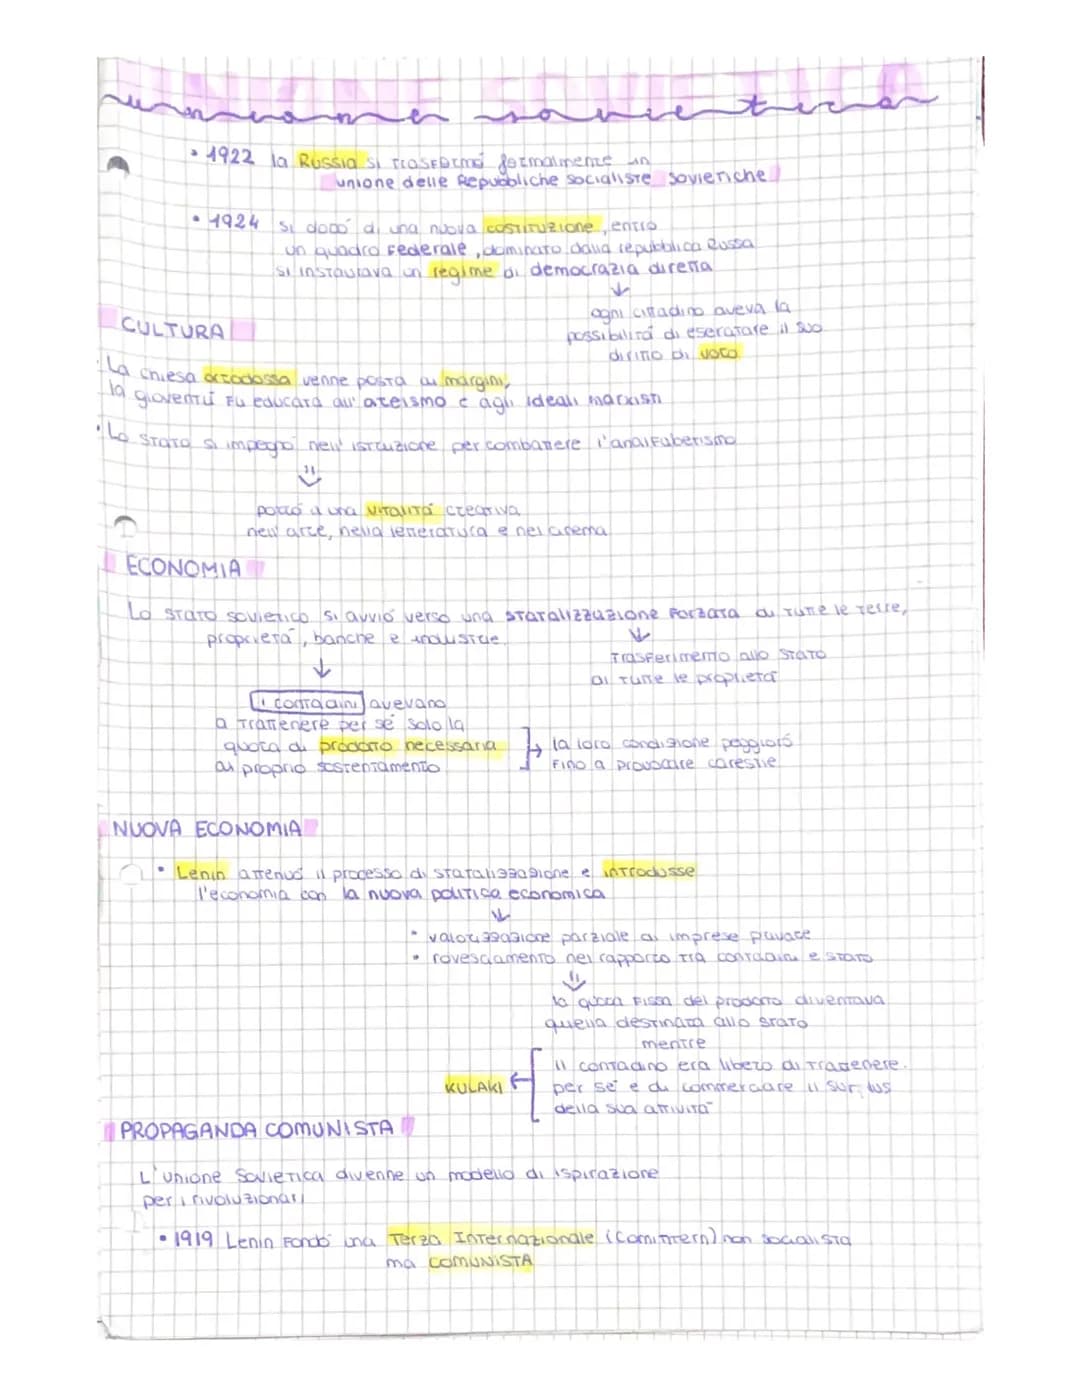 UNIONE SOVIETICA
unione sovietica
• 1922 la Russia si trasformò formalmente in
unione delle Repubbliche socialiste sovietiche
• 1924 si dopò di una nuova costituzione, entro
un quadro federale, dominato dalla repubblica Russa
si instaurava un regime di democrazia diretta
↓
ogni cittadino aveva la
possibilità di esercitare il suo
diritto di voto
CULTURA
• La chiesa ortodossa venne posta ai margini,
la gioventù fu educata all'ateismo e agli ideali marxisti
• Lo stato si impegnò nell'istruzione per combattere l'analfabetismo
⇓
portò a una vitalità creativa
nell'arte, nella letteratura e nel cinema
ECONOMIA
Lo stato sovietico si avviò verso una statalizzazione forzata di tutte le terre,
proprietà, banche e industrie
↓
trasferimento allo stato
di tutte le proprietà
↓
i contadini avevano
a trattenere per sé solo la
quota di prodotto necessaria
al proprio sostentamento
la loro condizione peggiorò
fino a provocare carestie
NUOVA ECONOMIA
• Lenin attenuò il processo di statalizzazione e introdusse
l'economia con la nuova politica economica
↓
• valorizzazione parziale di imprese private
• rovesciamento nel rapporto tra contadini e stato
⇓
la quota fissa del prodotto diventava
quella destinata allo stato
mentre
il contadino era libero di trattenere
per sé e di commerciare il surplus
della sua attività
KULAKI ←
PROPAGANDA COMUNISTA
L'Unione Sovietica divenne un modello di ispirazione
per i rivoluzionari
• 1919 Lenin fondò una Terza Internazionale (Comintern) non socialista
ma COMUNISTA